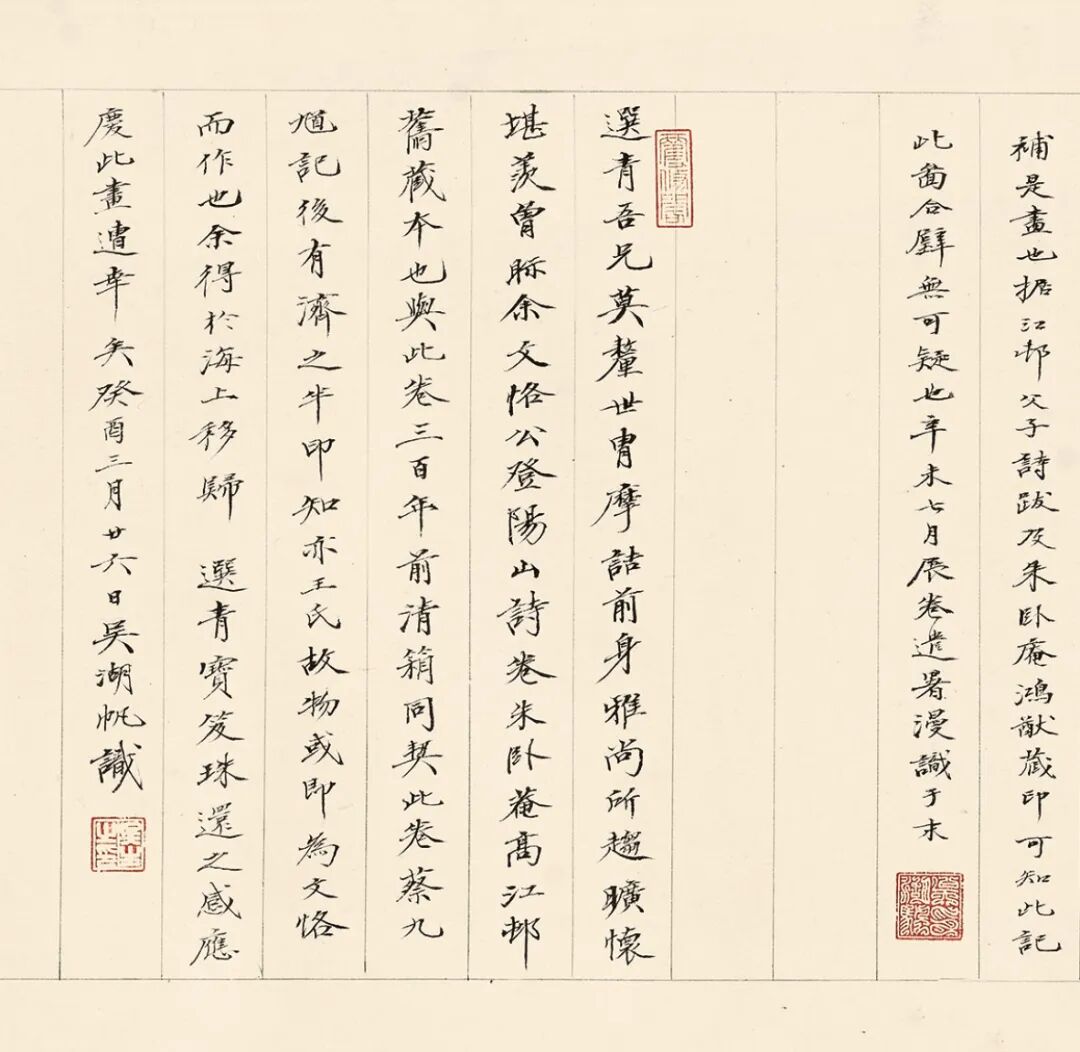 補是畫也据江邨父子詩跋及朱臥庵鴻猷藏印可知此記
此啚合璧無可疑也辛未七月展卷遣暑漫識于末
選青吾兄莫釐世冑摩詰前身雅尚所趨曠懷
堪羨曾眎余文恪公登陽山詩卷朱臥菴高江邨
舊藏本也與此卷三百年前清箱同契此卷蔡九
逵記後有濟之半印知亦王氏故物或即為文恪
而作也余得於海上移歸 選青寶笈珠還之感應
慶此畫遭幸矣癸酉三月廿六日吳湖帆識